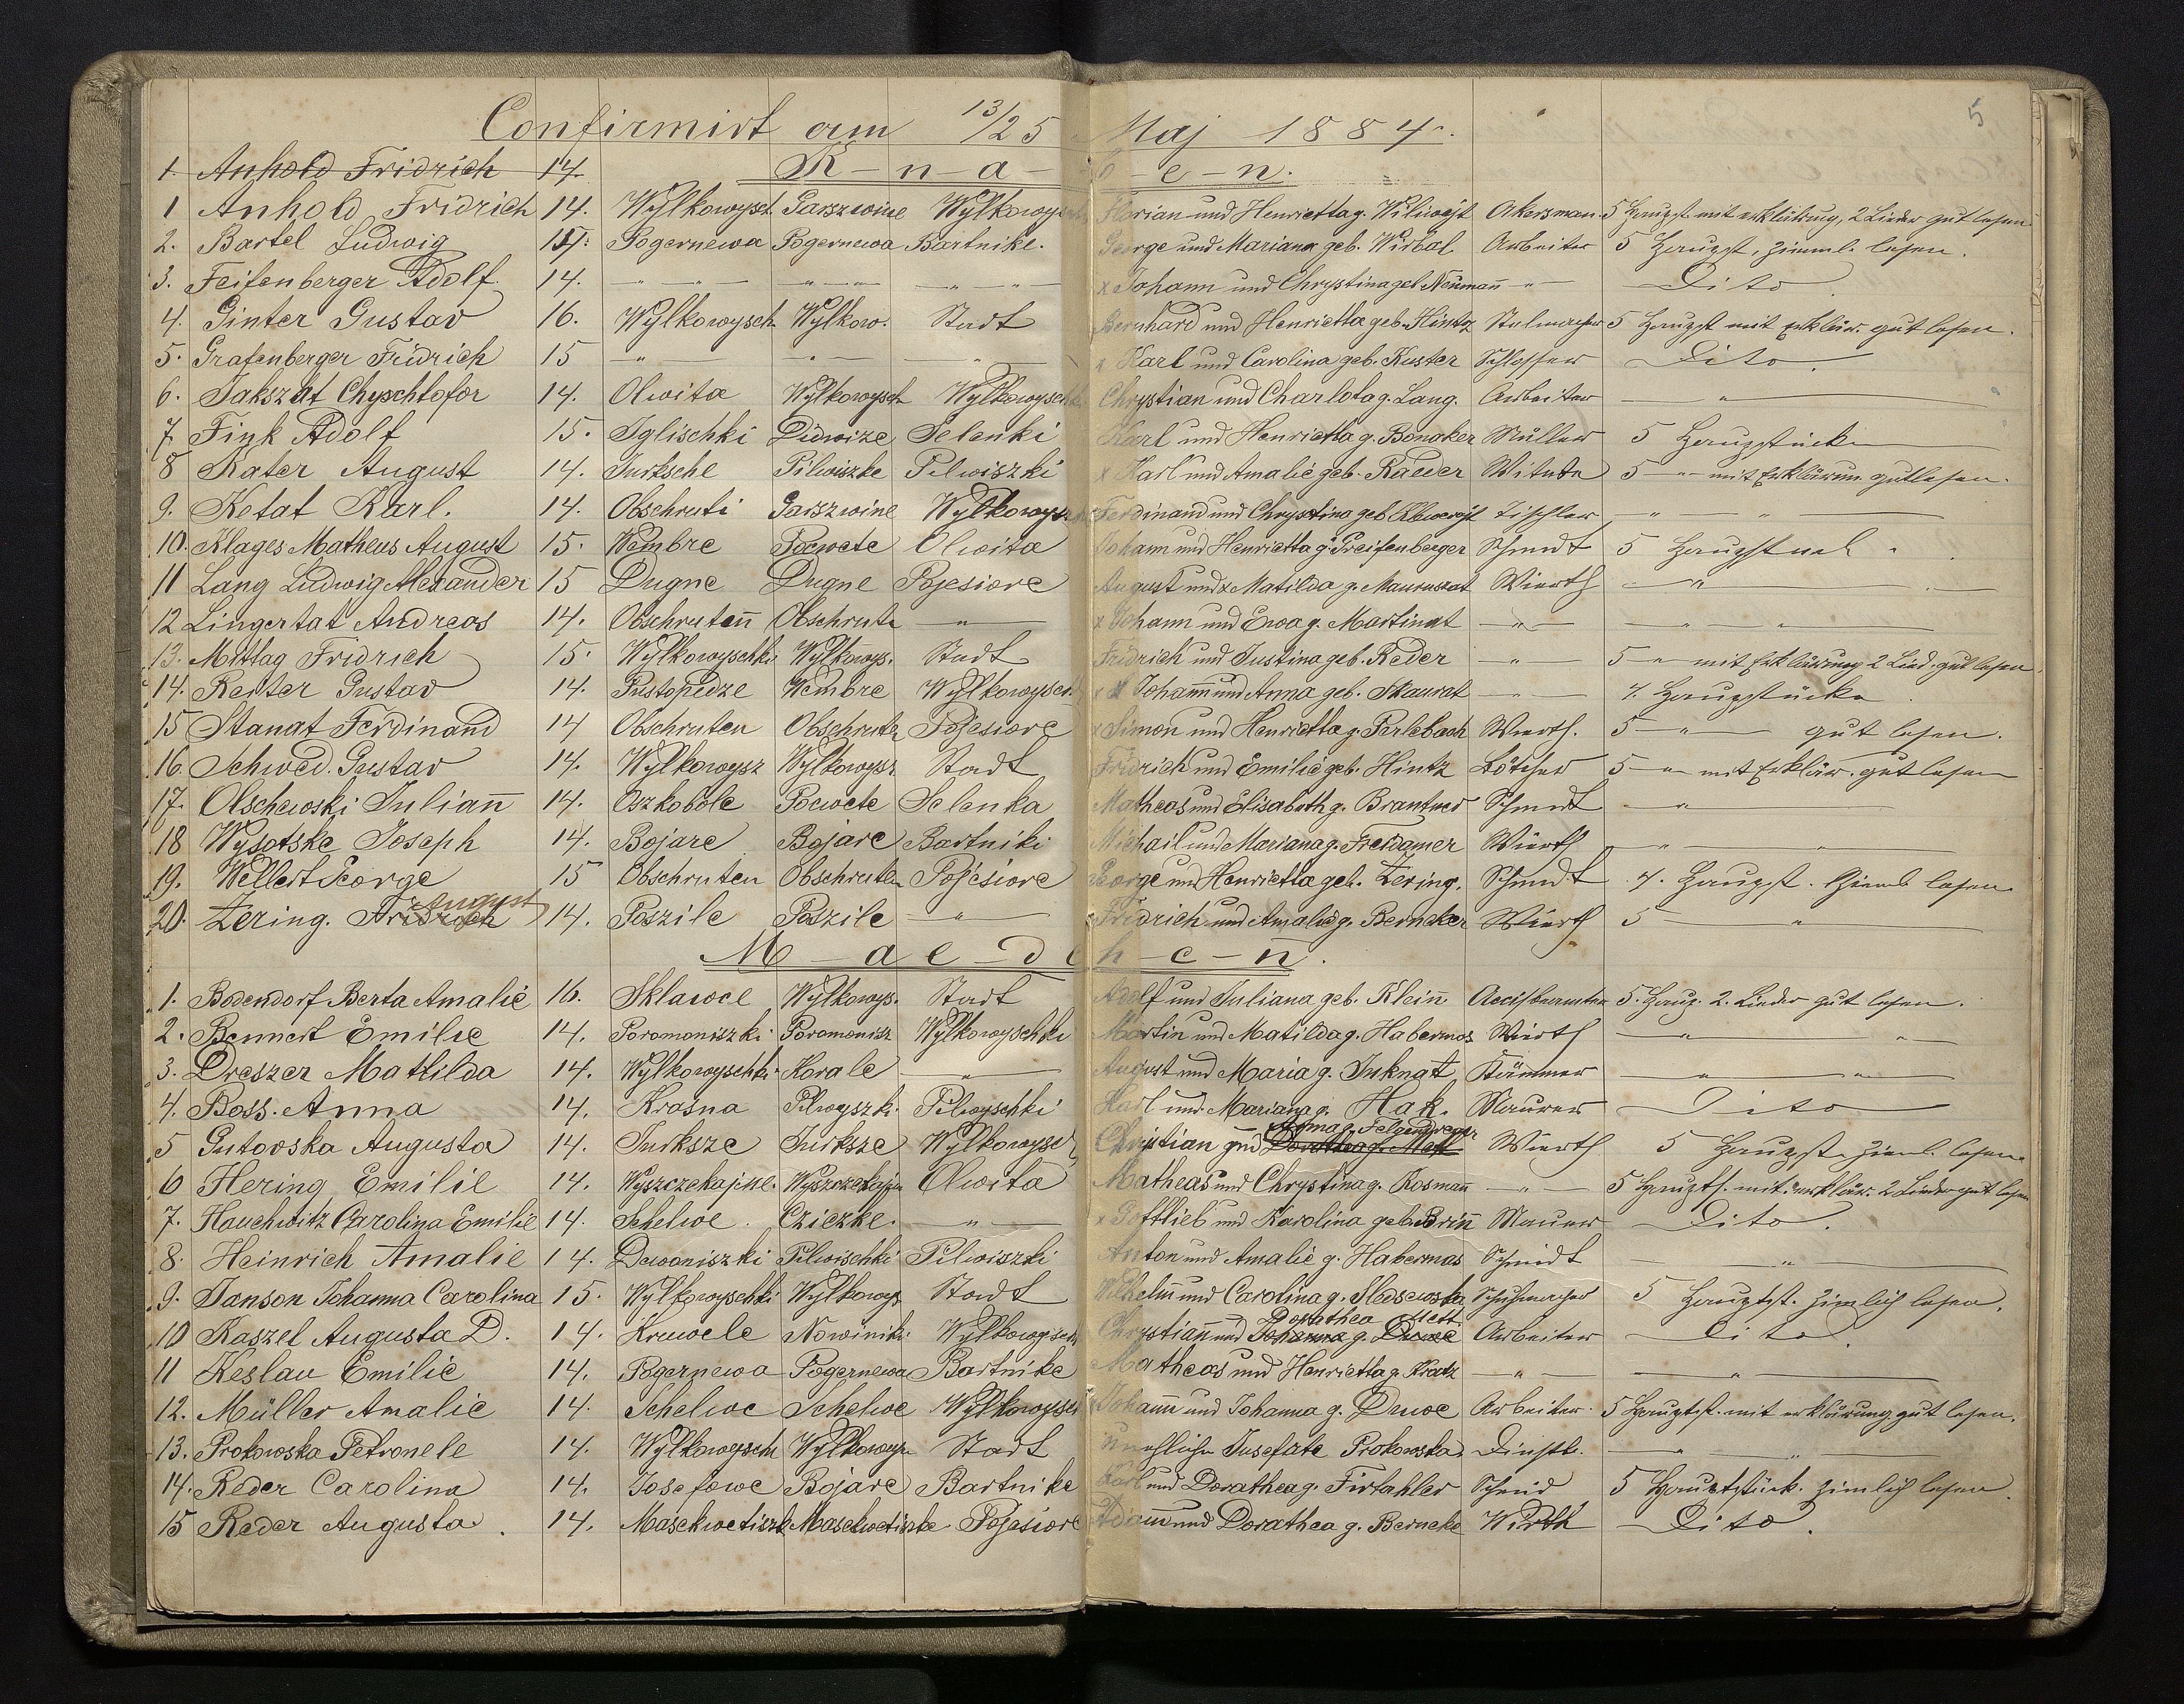 5
Confirmirt am 13/25 Maj 1884.
1. Anhold Fridrich 14. K-n-a-b-e-n.
1 Anhold Fridrich 14. Wylkowysch Garszwine Wylkowysch Florian und Henrietta g. Wiliweit Akersman 5 Haupst. mit erklärung, 2 Lieder gut lesen
2. Bartel Ludwig 15. Pogernewa Pogernewa Bartnike. George und Mariana geb. Wirbal Arbeiter 5 Haupst, zimml. lesen.
3. Feifenberger Adolf 14. — " — — " — — " — x Johann und Chrystina geb Neumann — " — Dito
4. Ginter Gustav 16. Wylkowysch Wylkow. Stadt Bernhard und Henrietta geb. Hintz Stelmacher 5 Haupst mit Erklär. gut lesen.
5. Grafenberger Fridrich 15 — " — — " — " x Karl und Carolina geb. Kuster Schlosser Dito.
6. Jakszat Chyschtofor 14. Olwita Wylkowysch Wylkowysch Chrystian und Charlota g. Lang. Arbeiter — " —
7. Fink Adolf 15. Iglischki Didwize Selenki Karl und Henrietta g. Bongker Müller 5 Haupstücke
8 Kater August 14. Jurksche Pilwiszke Pilwiszki x Karl und Amalie geb. Raeder 5 — " — mit Erklärun. gut lesen.
9. Ketat Karl. 14. Obschruti Garszwine Wylkowysz Ferdinand und Chrystina geb Tischler — " — " —
10. Klages Matheus August 15. Wembre Poewete Olwita Johann und Henrietta g. Greifenberger Schmidt 5 Haupstück
11 Lang Ludwig Alexander 15 Dugne Dugne Pojesiore August und x Matilda g. Mauruszat Wierth — " —
12 Lingertat Andreas 14. Obschruten Obschrute — " — x Johann und Ewa g. Martinat — " — — " — " —
13. Mittag Fridrich 15. Wylkowyschki Wylkowys. Stadt Fridrich und Justina geb. Reder — " — 5 — " mit Erklärung 2 Lied. gut lesen.
14. Reiter Gustav 14. Pustopedze Wembre Wylkowysch x Johann und Anna geb. Skaurat — " — 4. Haupstücke
15 Stanat Ferdinand 14 Obschruten Obschruten Pojesiore x Simon und Henrietta g. Perlebach Wierth. 5 — " — gut lesen.
16. Schwed. Gustav 14. Wylkowysz Wylkowysz Stadt Fridrich und Emilie geb. Hintz Bötcher 5 — " mit Erklär. gut lesen
17. Olschewski Juliann 14. Oszkobole Poewete Selenka Matheas und Elisabeth g. Brantner Schmidt — " —
18 Wysotske Joseph 14. Bojare Bojare Bartniki Michail und Mariana g. Freidamer Wierth — " — " —
19. Wellert George 15 Obschruten Obschruten Pojesiore George und Henrietta geb. Zering. Schmidt 4. Haupst. Ziemb lesen
20. Zering. Fridrich August 14. Poszile Poszile — " — Fridrich und Amalie g. Berneker Wierth 5 — " —
M-ae-d-ch-e-n.
1. Bodendorf Berta Amalie 16. Sklawce Wylkowys. Stadt Adolf und Juliana geb. Klein 5. Haup. 2. Lieder gut lesen.
2. Bennert Emilie 14. Poromoniszki Poromonisz Wylkowyschki Martin und Matilda g. Habermas Wierth — " — " —
3. Dreszer Mathilda 14. Wylkowyschki Korale — " — August und Maria g. Jukngt — " — " —
4. Boss. Anna 14. Krasna Pilwyszki Pilwyschki Karl und Mariana g. Hak. Maurer Dito
5 Gutovska Augusta 14. Jurksze Jurksze Wylkowysch Chrystian und Dorathea g. Mett Anna g. Felgendreger Wierth 5 Haupst. Ziml. lesen.
6 Hering Emilie 14. Wyszczekajme Wyszczekajme Olwita Matheas und Chrystina g. Rosmann — " — 5 Haupts. mit erklär. 2 Lieder gut lesen
7. Hauchwitz Carolina Emilie 14. Schelwe Cziczke. — " — x Gottlieb und Karolina geb. Brinn Maurer Dito.
8. Heinrich Amalie 14. Dewoniszki Pilwischki Pilwiszki Anton und Amalie g. Habermas Schmidt — " —
9. Janson Johanna Carolina 15. Wylkowyschki Wylkowys Stadt Wilhelm und Carolina g. Schuhmacher 5 Hauptst. Zimlich lesen.
10 Kaszel Augusta D. 14. Kruwele Nowiniki Wylkowysch Chrystiann und Johanna g. Druwe Dorathea Mett Arbeiter Dito
11 Keslau Emilie 14. Pogernewa Pogernewa Bartnike Matheas und Henrietta g. Kratz — " — — " —
12. Müller Amalie 14. Schelwe Schelwe Wylkowysch Johann und Johanna g. Druwe Arbeiter. 5 Hauptst. mit erklärung gut lesen.
13. Prokowska Petronele 14. Wylkowysch Wylkowys Stadt unehliche Josefate Prokowska. Dinstb. — " — " —
14. Reder Carolina 14. Josefowe Bojare Bartnike Karl und Dorathea g. Firtahler Schmid 5 Hauptstück. Zimlich lesen.
15 Reder Augusta. 14. Maschwetiszk Maschwetiszke Pojesiore Adam und Dorathea g. Berneke Wirth Dito.